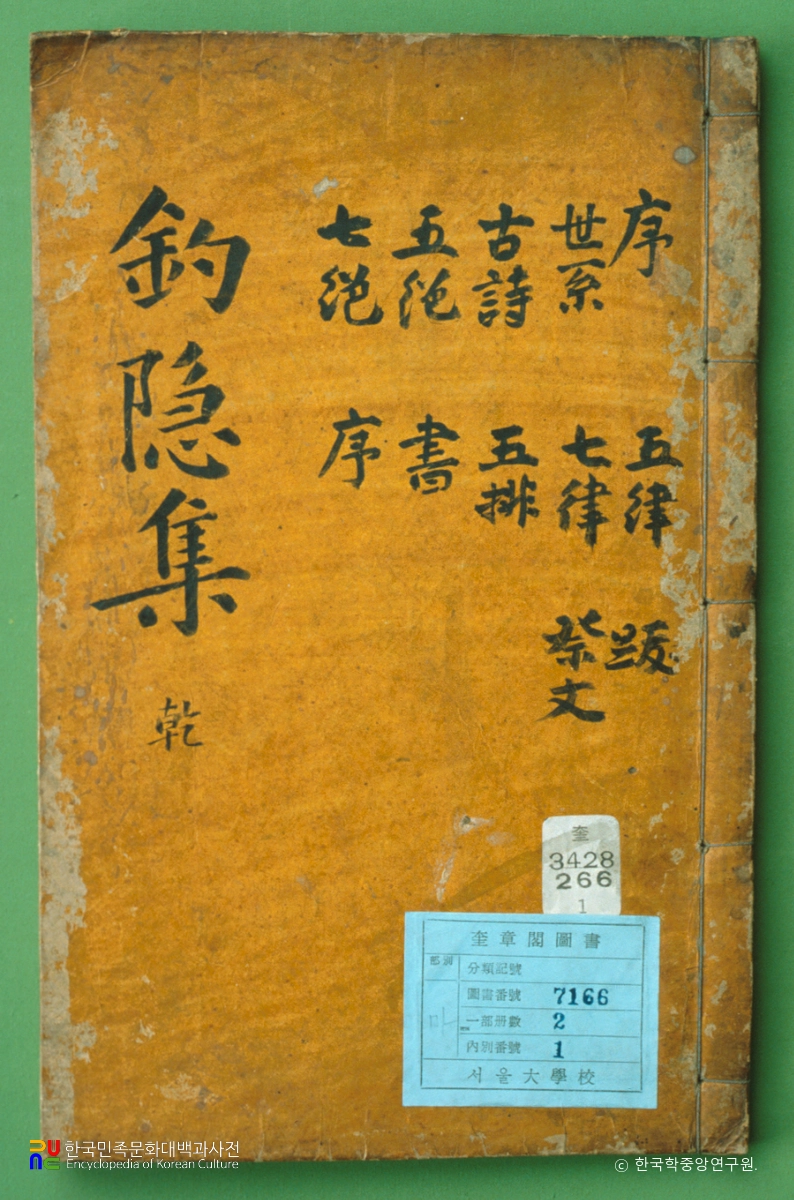 序
世系
古詩
五絶
七絶
五律
七律
五排
書
序
跋
祭文
釣隐集
乾
奎
3428
266
1
奎章閣圖書
分類記號
圖書番號 7166
一部册數 2
內別番號 1
서울大學校
한국민족문화대백과사전
Encyclopedia of Korean Culture
© 한국학중앙연구원.